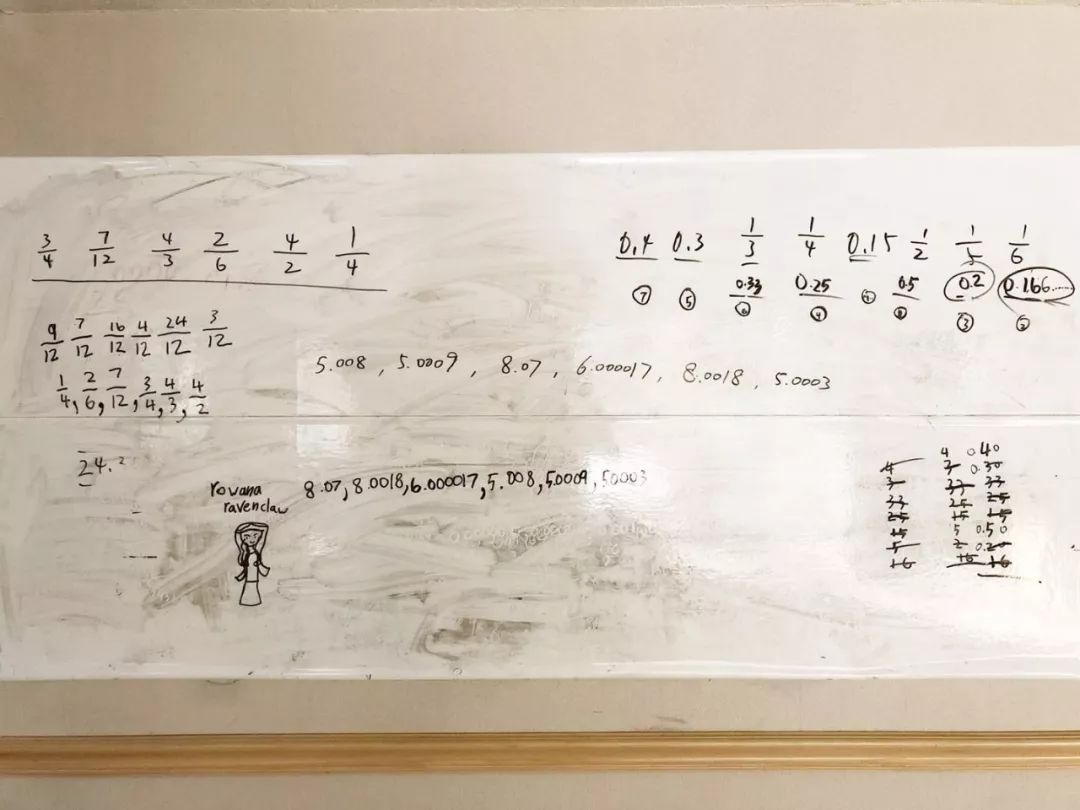 3/4 7/12 4/3 2/6 4/2 1/4
9/12 7/12 16/12 4/12 24/12 3/12
1/4, 2/6, 7/12, 3/4, 4/3, 4/2
24.²
0.4 0.3 1/3 1/4 0.15 1/2 1/5 1/6
0.33 0.25 0.5 0.2 0.166......
⑦ ⑤ ⑥ ④ ① ⑧ ③ ②
5.008, 5.0009, 8.07, 6.000017, 8.0018, 5.0003
rowana
ravenclaw
8.07, 8.0018, 6.000017, 5.008, 5.0009, 5.0003
4 0.40
4 3 0.30
3 33 33
33 25 25
25 15 15
15 5 0.50
5 2 0.20
16 16 16